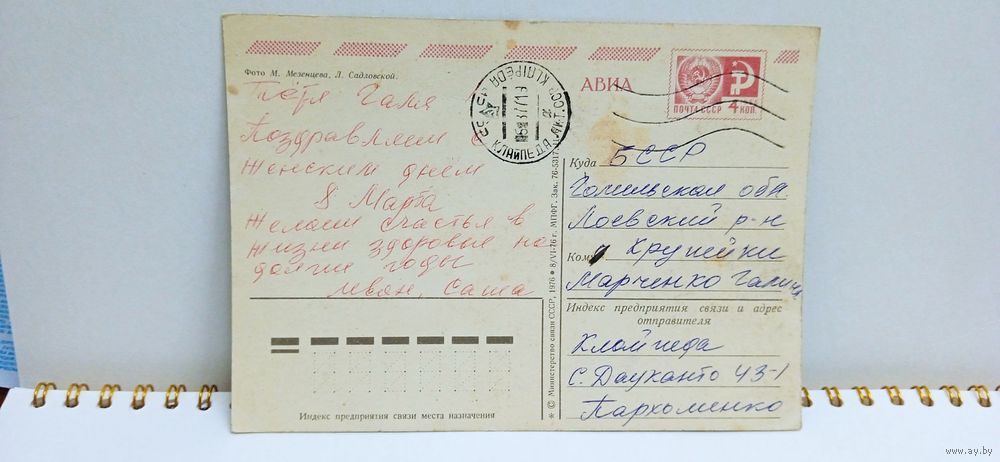 Фото М. Мезенцева, Л. Садловской.
АВИА
ПОЧТА СССР 4 КОП.
КЛАЙПЕДА ЛИТ. ССР KLAIPĖDA
Тётя Галя
Поздравляем с
женским днём
8 Марта
Желаем счастья в
жизни здоровья на
долгие годы
Саша
Куда БССР
Гомельская обл.
Лоевский р-н
Кому Хрупейки
Марченко Галине
Индекс предприятия связи и адрес
отправителя
Клайпеда
С. Дауканто 43-1
Пархоменко
Индекс предприятия связи места назначения
* © Министерство связи СССР, 1976 • 8/VI-76 г. МПФГ. Зак. 76-5317.
www.ay.by